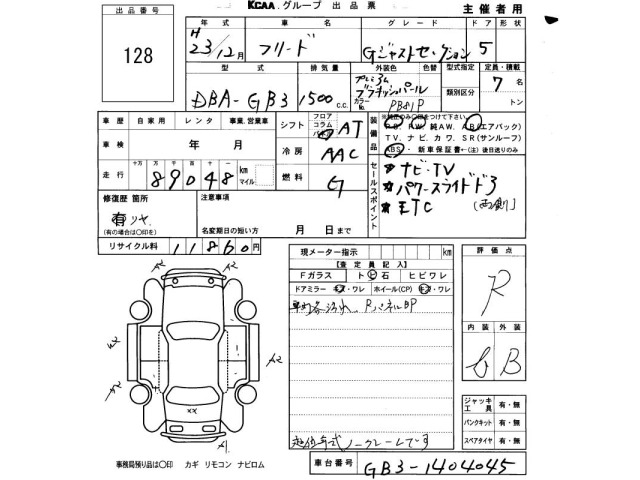 KCAA グループ 出品票 主催者用
出品番号 128
年式 車名 グレード ドア 形状
H 23/12月 フリード Gジャストセレクション 5
型式 排気量 外装色 色替 型式指定 定員・積載
DBA-GB3 1500 c.c. プレミアム カラーNo. PB81P 類別区分 7 名 トン
車歴 自家用 レンタ 事業、営業車 シフト フロア コラム AT
装備品 P.S. P.W. 純AW. A.B(エアバック)
T.V. ナビ. カワ. S.R(サンルーフ)
A.B.S.・新車保証書←(注)後日送りのみ
車検 年 月 冷房 AAC
走行 十万 万 千 百 十 89048 km マイル 燃料 G
セールスポイント
★ナビ・TV
★パワースライドド
★ETC
修復歴 箇所 注意事項
有 リヤ.
(有の場合は〇印を) 名変期日の短い方 月 日まで
リサイクル料 11860円
現メーター指示 km
【査定員記入】
Fガラス ト ビ 石 ヒビワレ
ドアミラー キズ・ワレ ホイール(CP) キズ・ワレ
評価点 R
内装 外装
B
ジャッキ工具 有・無
パンクキット 有・無
スペアタイヤ 有・無
A2
A2
A2
A2
XX
A1
ノークレームです
事務局預り品は〇印 カギ リモコン ナビロム
車台番号 GB3-1404045